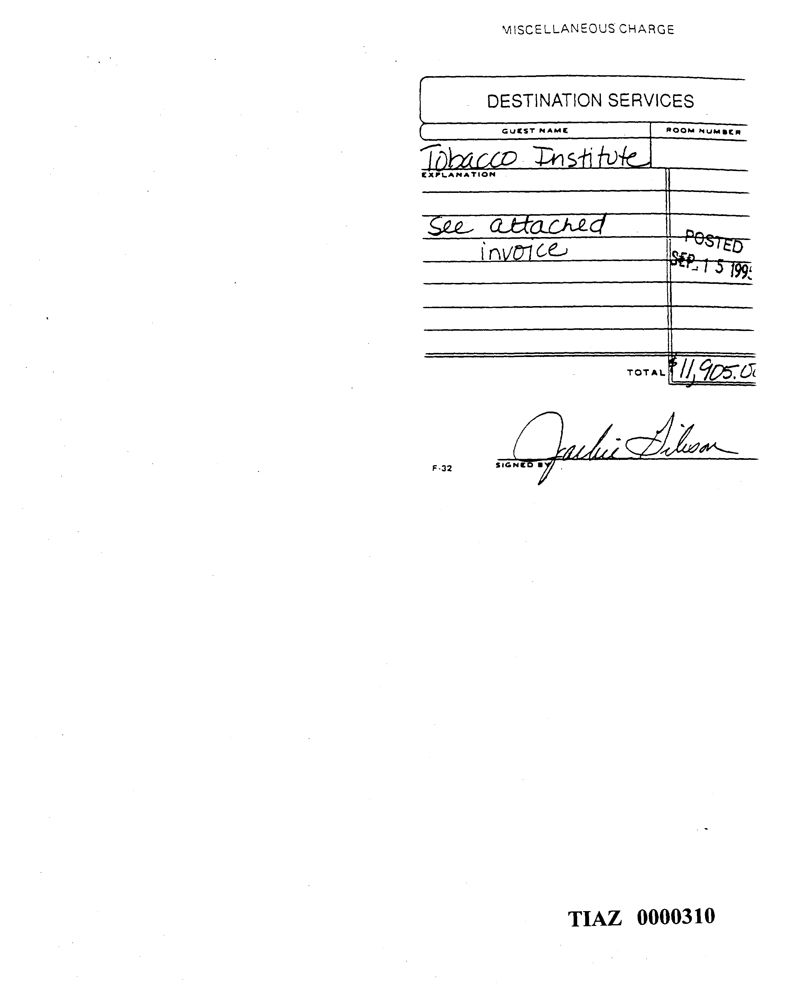 MISCELLANEOUS CHARGE
DESTINATION SERVICES
GUEST NAME ROOM NUMBER
Tobacco Institute
EXPLANATION
See attached
invoice
POSTED
SEP. 15 199
TOTAL $11,905.0
Jackie Gibson
F-32 SIGNED BY
TIAZ 0000310